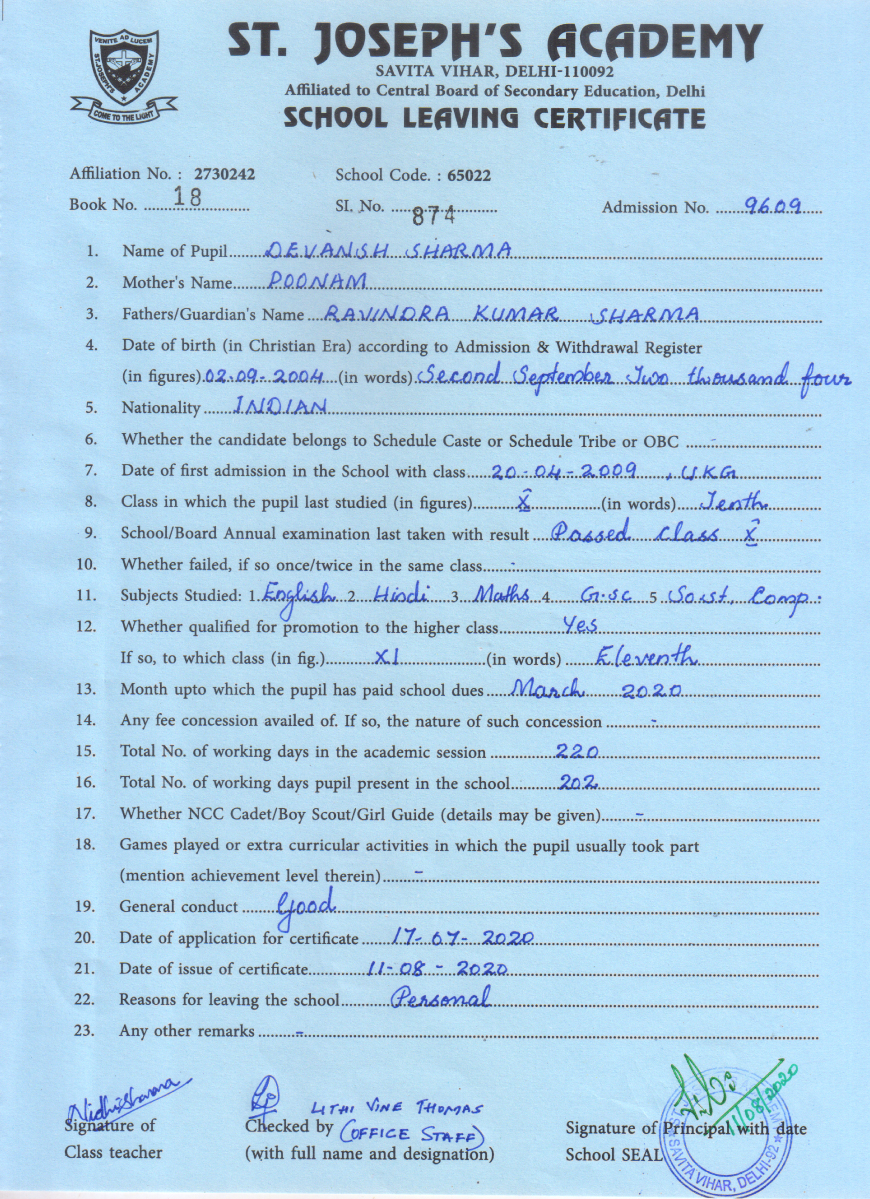 VENITE AD LUCEM
ST. JOSEPH'S ACADEMY
COME TO THE LIGHT
ST. JOSEPH'S ACADEMY
SAVITA VIHAR, DELHI-110092
Affiliated to Central Board of Secondary Education, Delhi
SCHOOL LEAVING CERTIFICATE
Affiliation No. : 2730242 School Code. : 65022
Book No. 18 SI. No. 874 Admission No. 9609
1. Name of Pupil DEVANSH SHARMA
2. Mother's Name POONAM
3. Fathers/Guardian's Name RAVINDRA KUMAR SHARMA
4. Date of birth (in Christian Era) according to Admission & Withdrawal Register
(in figures) 02-09-2004 (in words) Second September Two thousand four
5. Nationality INDIAN
6. Whether the candidate belongs to Schedule Caste or Schedule Tribe or OBC -
7. Date of first admission in the School with class 20-04-2009, UKG
8. Class in which the pupil last studied (in figures) X (in words) Tenth
9. School/Board Annual examination last taken with result Passed Class X
10. Whether failed, if so once/twice in the same class -
11. Subjects Studied: 1. English 2 Hindi 3 Maths 4 G.sc 5 So.st, Comp.
12. Whether qualified for promotion to the higher class Yes
If so, to which class (in fig.) XI (in words) Eleventh
13. Month upto which the pupil has paid school dues March 2020
14. Any fee concession availed of. If so, the nature of such concession -
15. Total No. of working days in the academic session 220
16. Total No. of working days pupil present in the school 202
17. Whether NCC Cadet/Boy Scout/Girl Guide (details may be given) -
18. Games played or extra curricular activities in which the pupil usually took part
(mention achievement level therein) -
19. General conduct Good
20. Date of application for certificate 17-07-2020
21. Date of issue of certificate 11-08-2020
22. Reasons for leaving the school Personal
23. Any other remarks -
Nidhi Sharma LITHI VINE THOMAS 11/08/2020
Signature of Checked by (OFFICE STAFF) Signature of Principal with date
Class teacher (with full name and designation) School SEAL
SAVITA VIHAR, DELHI-92